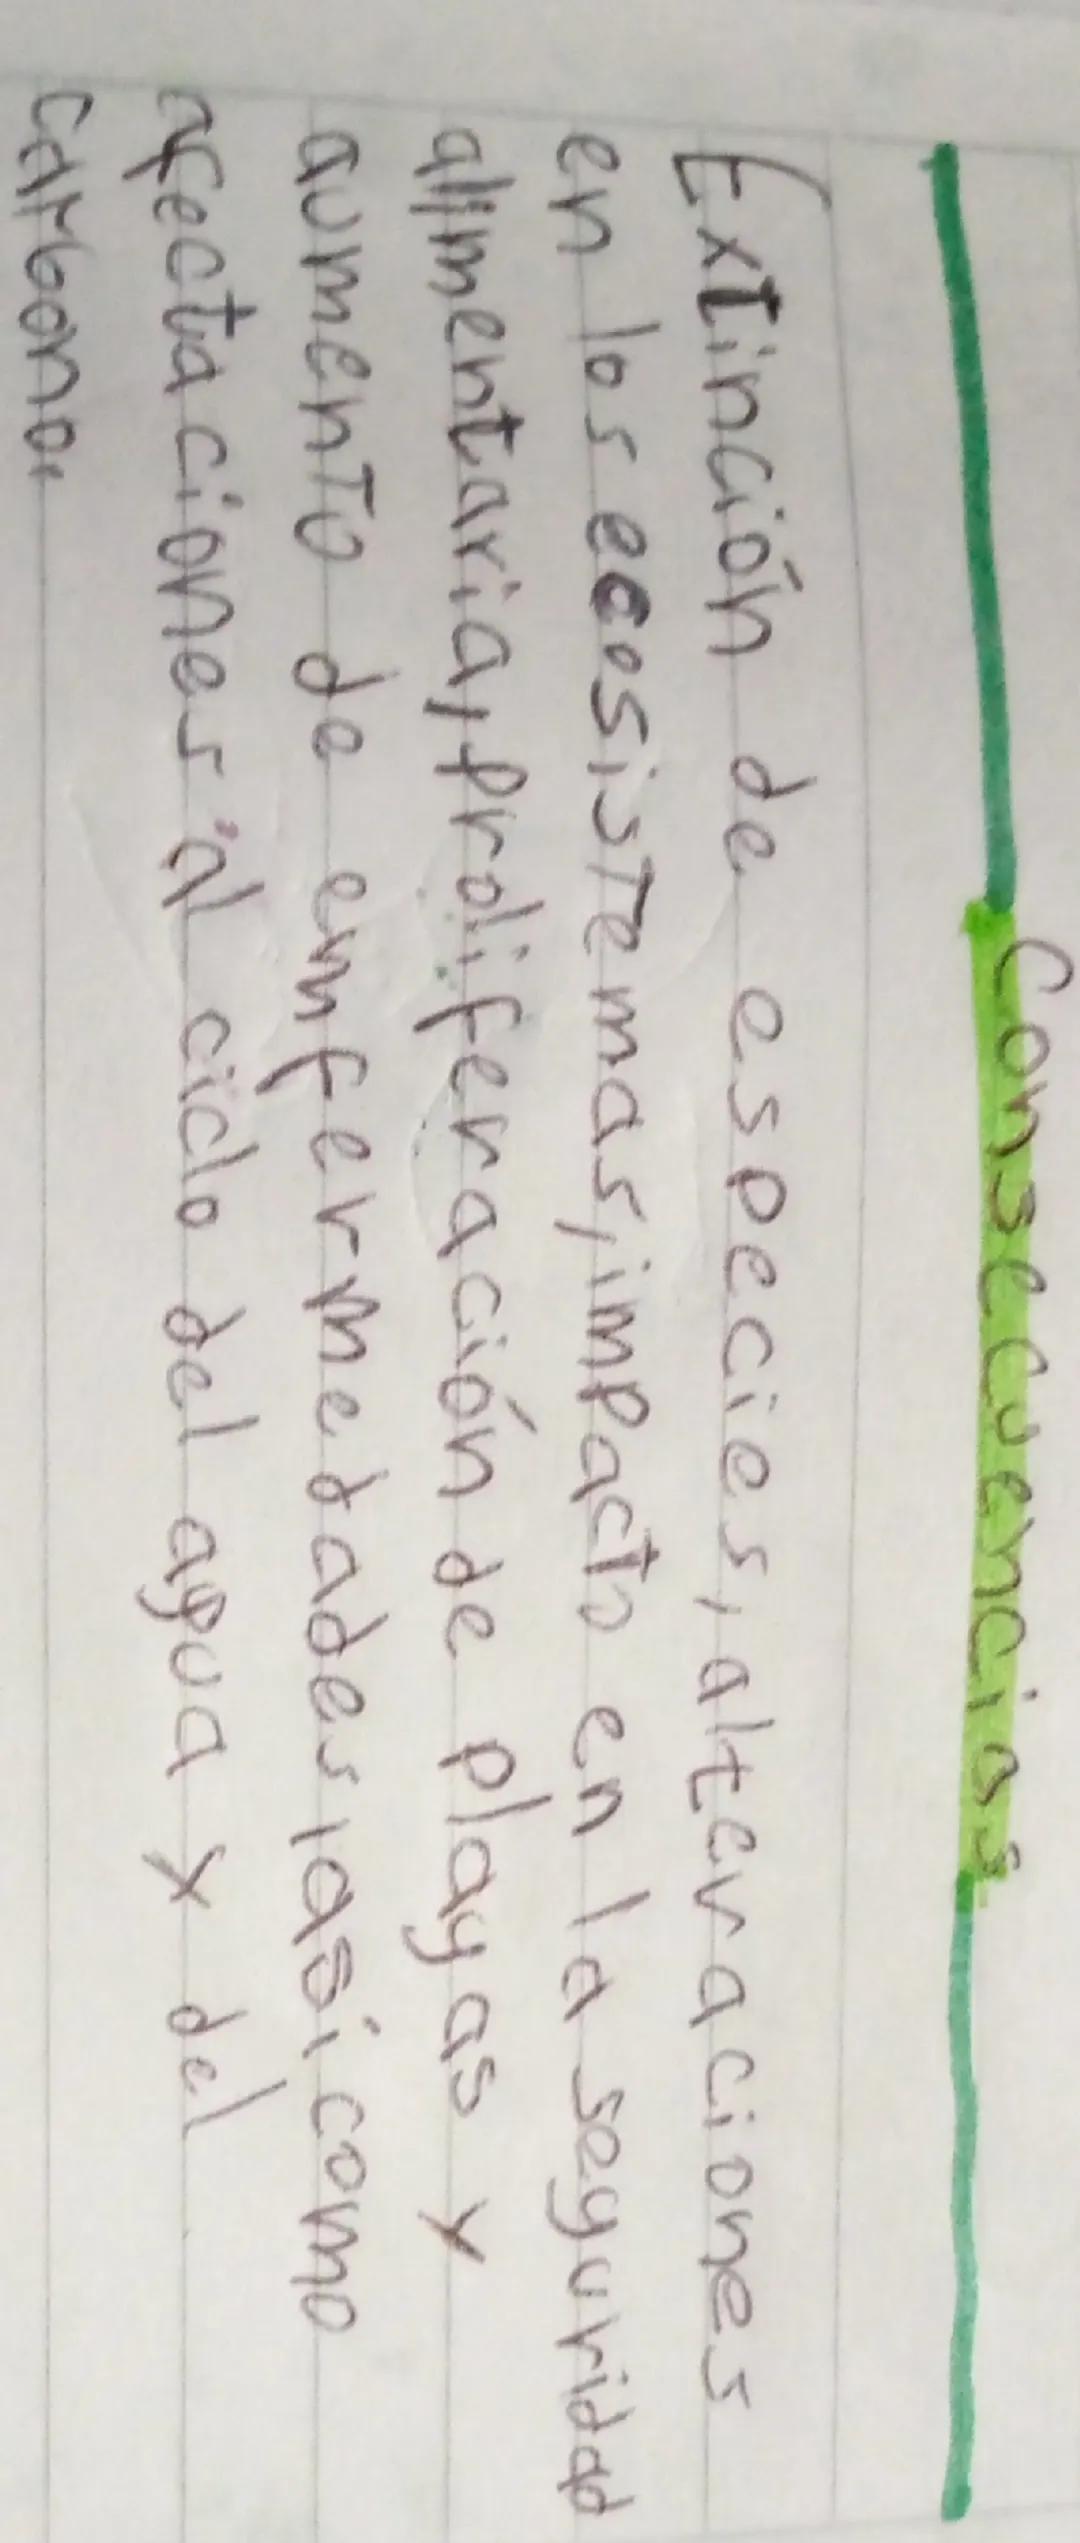 Consecuencias
Extinción de especies, alteraciones
en los ecosistemas, impacto en la seguridad
alimentaria, proliferación de playas y
aumento de emfermedades, asi como
afectaciones al ciclo del agua y del
carbono.